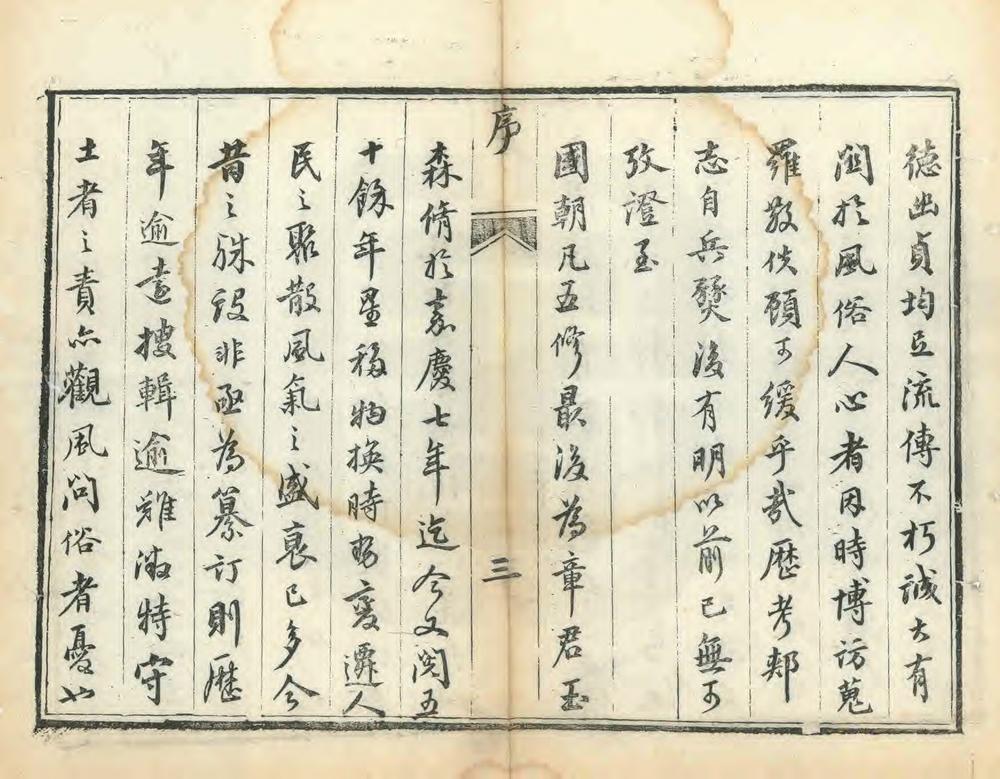 德出貞均足流傳不朽誠大有
關於風俗人心者因時博訪蒐
羅散佚顧可緩乎哉歷考郟
志自兵燹後有明以前已無可
攷證至
國朝凡五修最後為章君玉
序
三
森脩於嘉慶七年迄今又閱五
十餘年星移物換時勢變遷人
民之聚散風氣之盛衰已多今
昔之殊設非亟為纂訂則歷
年逾遠搜輯逾難微特守
土者之責亦觀風問俗者憂也